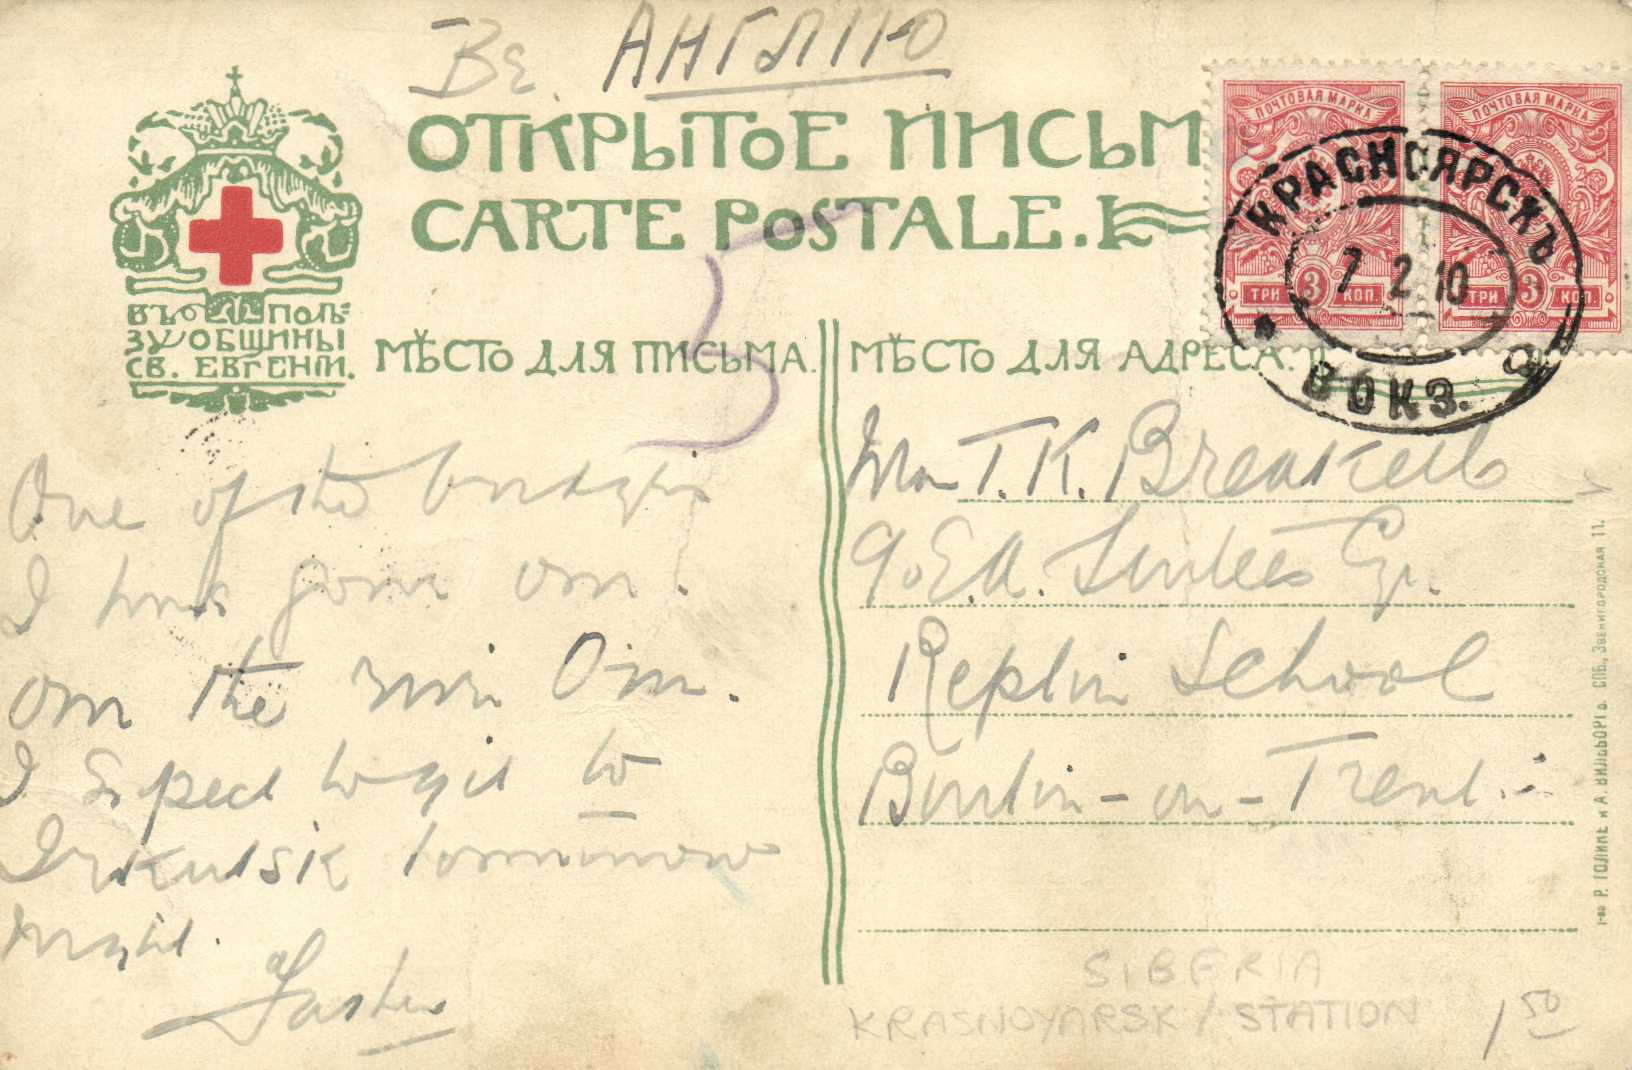 Въ Англію
ОТКРЫТОЕ ПИСЬМ
CARTE POSTALE.
ПОЧТОВАЯ МАРКА
ПОЧТОВАЯ МАРКА
ТРИ 3 КОП.
ТРИ 3 КОП.
КРАСНОЯРСКЪ
7 2 10
ВОКЗ.
ВЪ ПОЛЬ-
ЗУ ОБЩИНЫ
СВ. ЕВГЕНІИ.
МѢСТО ДЛЯ ПИСЬМА.
МѢСТО ДЛЯ АДРЕСА.
One of the bridges
I have gone on.
on the river Om.
I expect to get to
Irkutsk tomorrow
night.
T. K. Breakell
Repton School
Burton-on-Trent
Р. ГОЛИКЕ и А. ВИЛЬБОРГЪ. СПБ., ЗВЕНИГОРОДСКАЯ 11.
SIBERIA
KRASNOYARSK / STATION
1 50